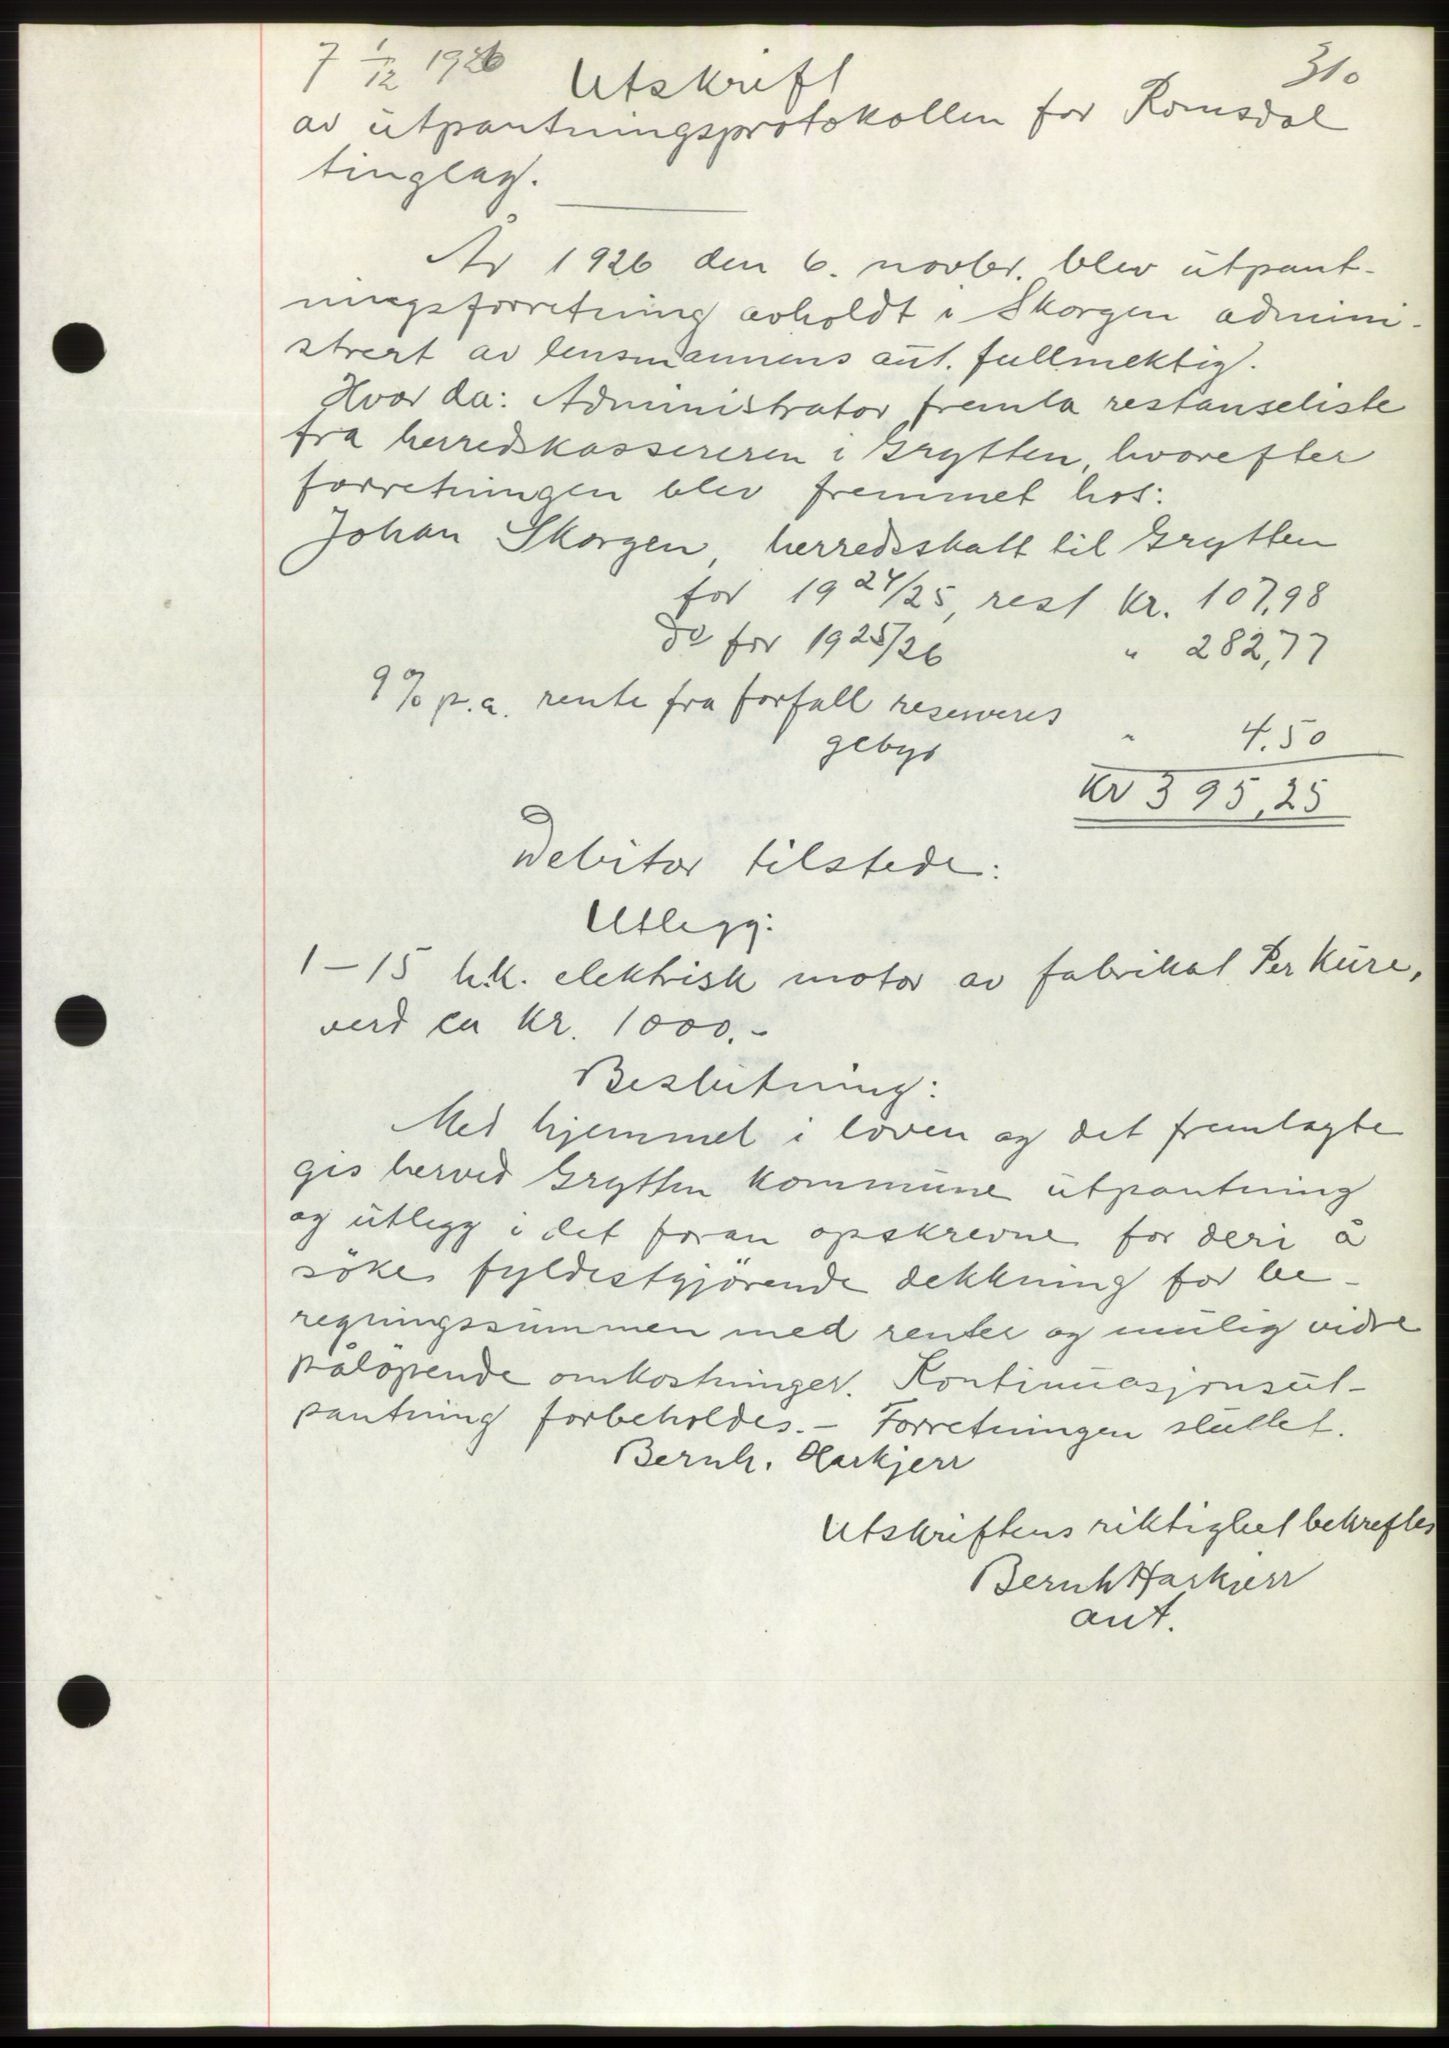 7 1/12 1926
310
Utskrift
av utpantningsprotokollen for Romsdal
tinglag.
År 1926 den 6. novbr. blev utpant-
ningsforretning avholdt i Skorgen admini-
strert av lensmannens aut. fullmektig.
Hvor da: Administrator fremla restanseliste
fra herredskassereren i Grytten, hvorefter
forretningen blev fremmet hos:
Johan Skorgen, herredsskatt til Grytten
for 1924/25, rest kr. 107,98
do for 1925/26 " 282,77
9 % p.a. rente fra forfall reserveres
gebyr " 4.50
kr 395,25
Debitor tilstede:
Utlegg:
1 – 15 h.k. elektrisk motor av fabrikat Per Kure,
verd ca kr. 1000.-
Beslutning:
Med hjemmel i loven og det fremlagte
gis herved Grytten kommune utpantning
og utlegg i det foran opskrevne for deri å
söke fyldestgjörende dekkning for be-
regningssummen med renter og mulig vidre
påløpende omkostninger. Kontinuasjonsut-
pantning forbeholdes. – Forretningen sluttet.
Bernh. Harkjerr
Utskriftens riktighet bekreftes
Bernh Harkjerr
aut.